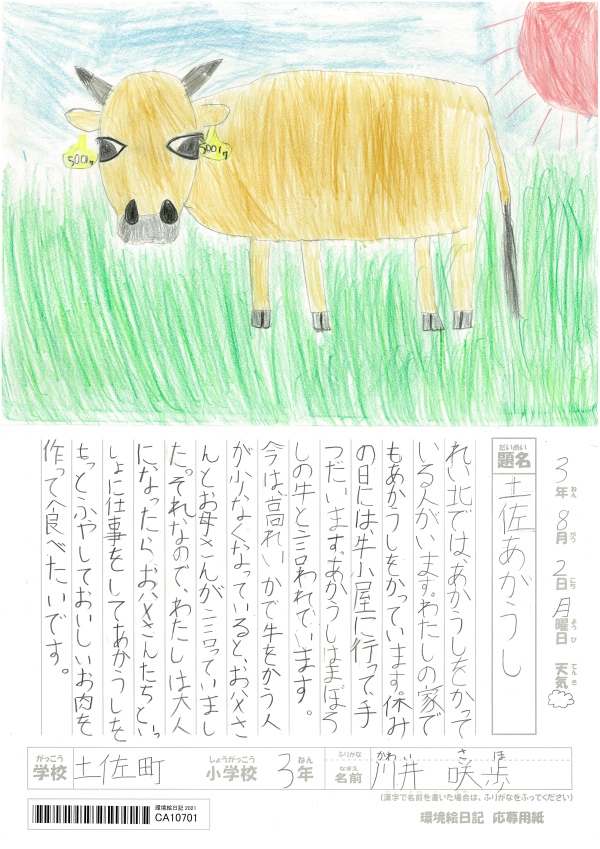 5001g
5001g
3年 8月 2日 月曜日 天気
ねん がつ にち ようび てんき
だいめい
題名
土佐あかうし
れい北では、あかうしをかって
いる人がいます。わたしの家で
もあかうしをかっています。休み
の日には、牛小屋に行って、手
つだいます。あかうしはまぼろ
しの牛と言われています。
今は、高れいかで牛をかう人
が少なくなっていると、お父さ
んとお母さんが言っていまし
た。それなので、わたしは大人
になったらお父さんたちといっ
しょに仕事をしてあかうしを
もっとふやしておいしいお肉を
作って食べたいです。
がっこう しょうがっこう ねん ふりがな かわ い さ ほ
学校 土佐町 小学校 3年 なまえ 名前 川井 咲歩
(漢字で名前を書いた場合は、ふりがなをふってください)
環境絵日記 応募用紙
環境絵日記 2021
CA10701